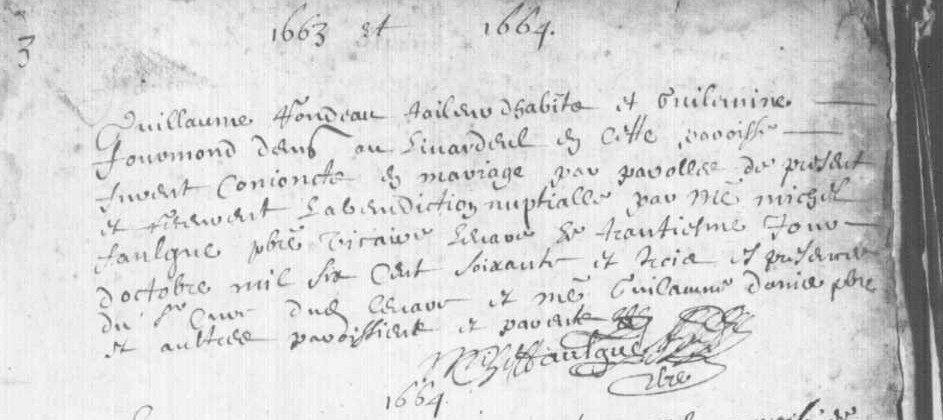 3
1663 et 1664.
Guillaume Hondeau tailleur dhabits et Guilemine
Fourmond dem au en cette paroisse
furent conioncts en mariage par parolles de present
et receurent la benediction nuptialle par Me michel
faulque pbre vicaire le trantiesme Jour
doctobre mil six cent soixante et trois es presence
du Sr Cure dud et Me Guilaume pbre
et aultres paroissiens et parents
M faulque
pbre
1664.